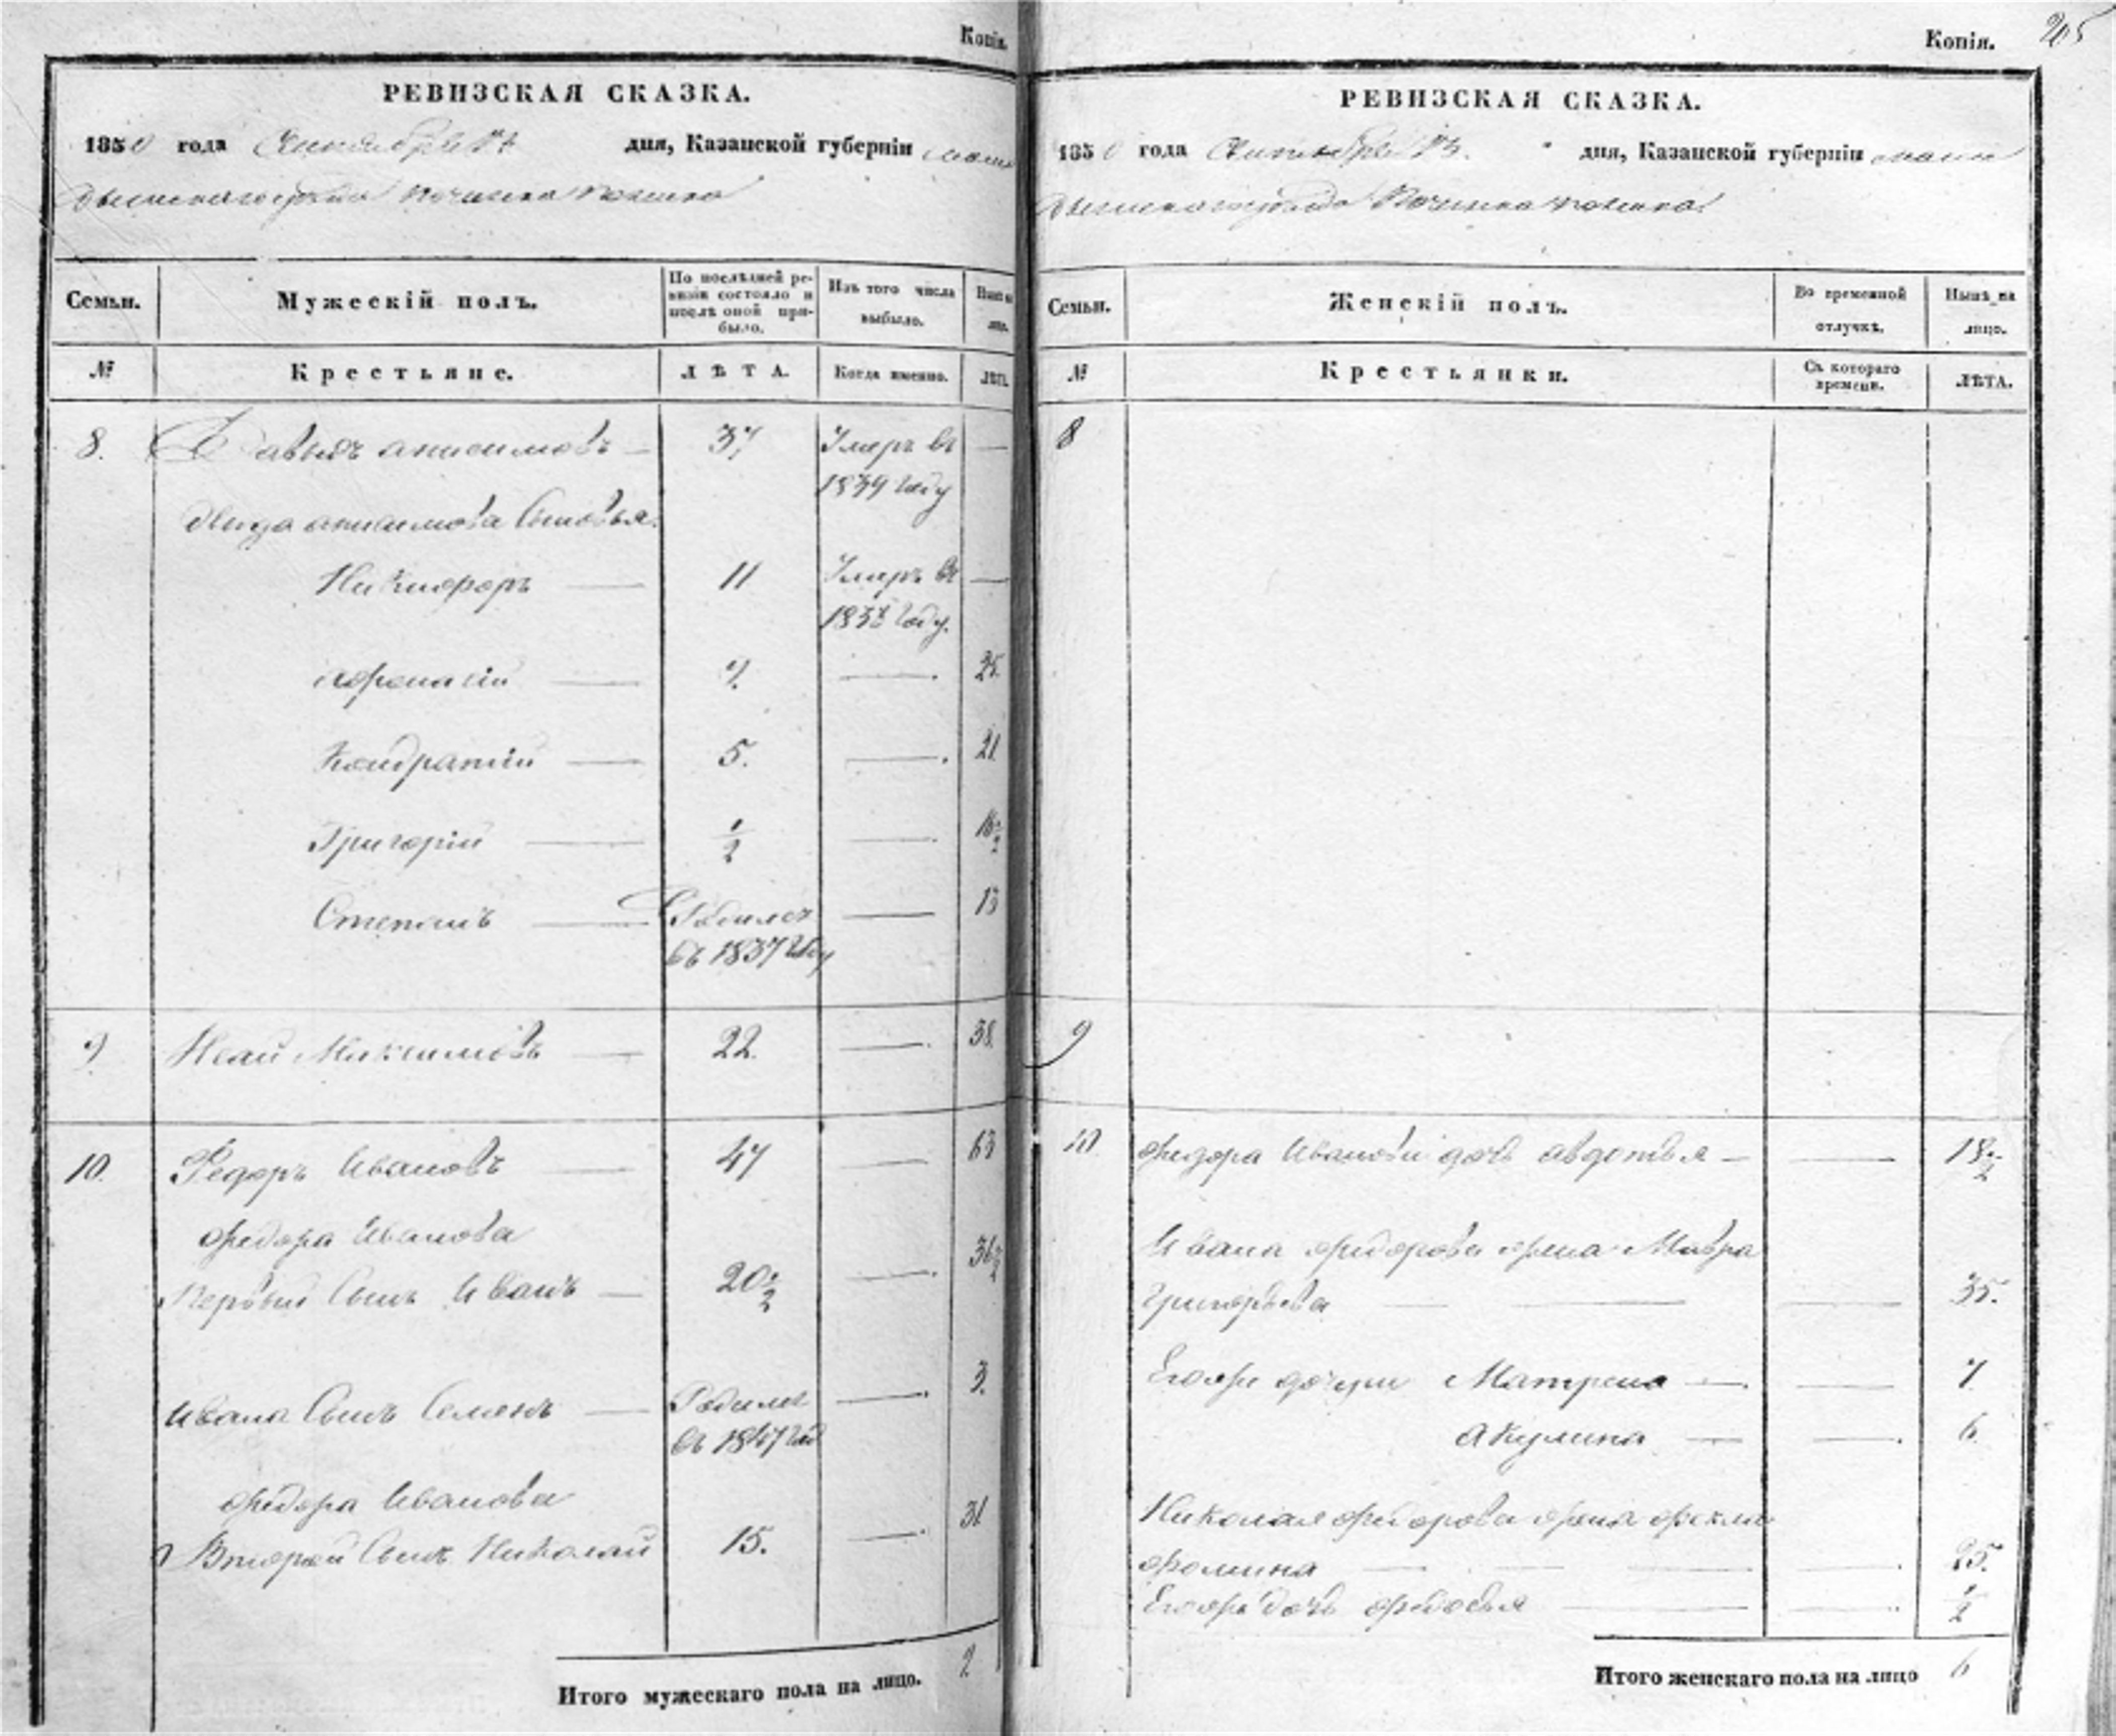 Копія.
РЕВИЗСКАЯ СКАЗКА.
1850 года дня, Казанской губерніи
починка
Семьи. Мужескій полъ. По послѣдней ре-
визіи состояло и
послѣ оной при-
было. Изъ того числа
выбыло. Нынѣ на
лицо.
№ Крестьяне. ЛѢТА. Когда именно. ЛѢТА.
8. Давыдъ анисимовъ — 37 Умеръ въ —
1839 году
анисимова Сыновья
Никифоръ — 11 Умеръ въ —
году.
афонасій — 9. — 25.
Кондратій — 5. — 21
Григорій — 1/2 — 16 1/2
Степанъ — Родился — 13
въ 1837 году
9 Иванъ Максимовъ — 22. — 38.
10. Федоръ Ивановъ — 47 — 63
федора Иванова
Первый Сынъ Иванъ — 20 1/2 — 36 1/2
Ивана Сынъ Семенъ — Родился — 3.
въ 1847 год
федора Иванова
Второй Сынъ Николай 15. — 31
Итого мужескаго пола на лицо.
Копія.
РЕВИЗСКАЯ СКАЗКА.
1850 года дня, Казанской губерніи
Починка
Семьи. Женскій полъ. Во временной
отлучкѣ. Нынѣ на
лицо.
№ Крестьянки. Съ котораго
времени. ЛѢТА.
8
9
10 федора Иванова дочь авдотья — — 18 1/2
Ивана федорова жена Мавра
Григорьева — — — 35.
Егожъ дочери Матрена — — 7
акулина — — 6
Николая федорова жена фекла
фомина — — — 25.
Егожъ дочь федосья — — 1/2
Итого женскаго пола на лицо 6